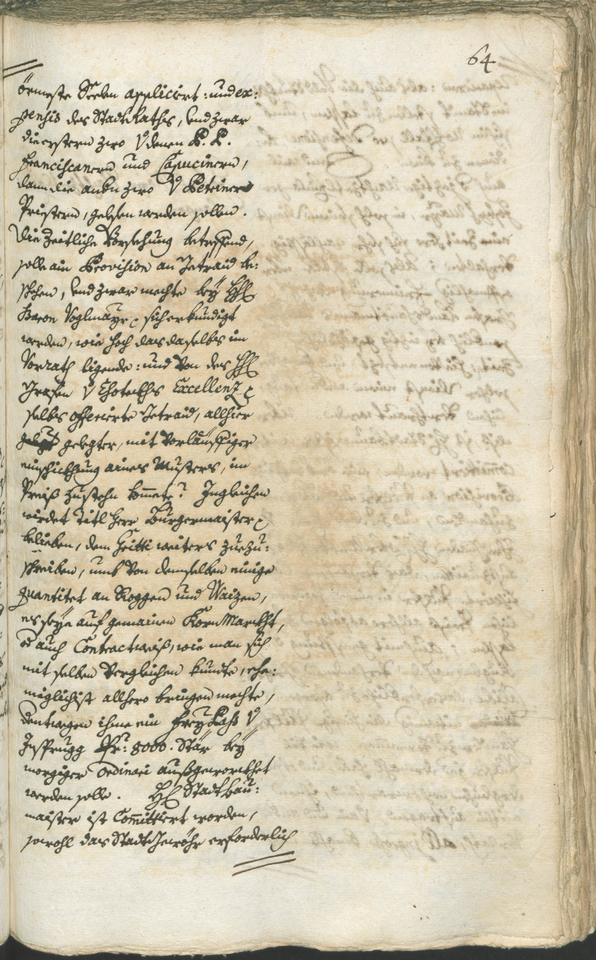 64
örmeste Seelen applicirt: und ex:
pensis des Stadt Raths, und zwar
die erstern zwo V denen P. P.
Franciscanern und Capucinern,
dann die andn zwo V Petriner
Priestern, gelesen werden sollen.
Die Zeitliche Vorsehung betreffend,
solle ain Provision an Getraid be:
schehen, und zwar mechte bey HH
Baron Voglmayr sich erkundigt
werden, wie hoch das daselbs im
Vorrath ligende: und von des HH
Grafen V Excellenz
selbs offerirte Getraid, allhier
gelegter, mit vorläuffiger
einschickhung aines Musters, im
Preiß zu stehn komete? Ingleichen
würdet Titl Herr Burgermaister
belieben, dem Gritti weiters zuezu:
schreiben, umb von demselben einige
quantitet an Roggen und Waizen,
es seye auf gemainen Korn Marckht,
od auch Contractweiß, wie man sich
mit selben Vergleichen kundte, ehe:
möglichist allhero bringen mechte,
dentwegen ihme ein frey Paß V
Insprugg Pr: 8000. Stär bey
morgiger Ordinari außgewürckhet
werden solle. HH Stadt bau:
maister ist Committirt worden,
sowohl das Stadt Gewöhr erforderlich